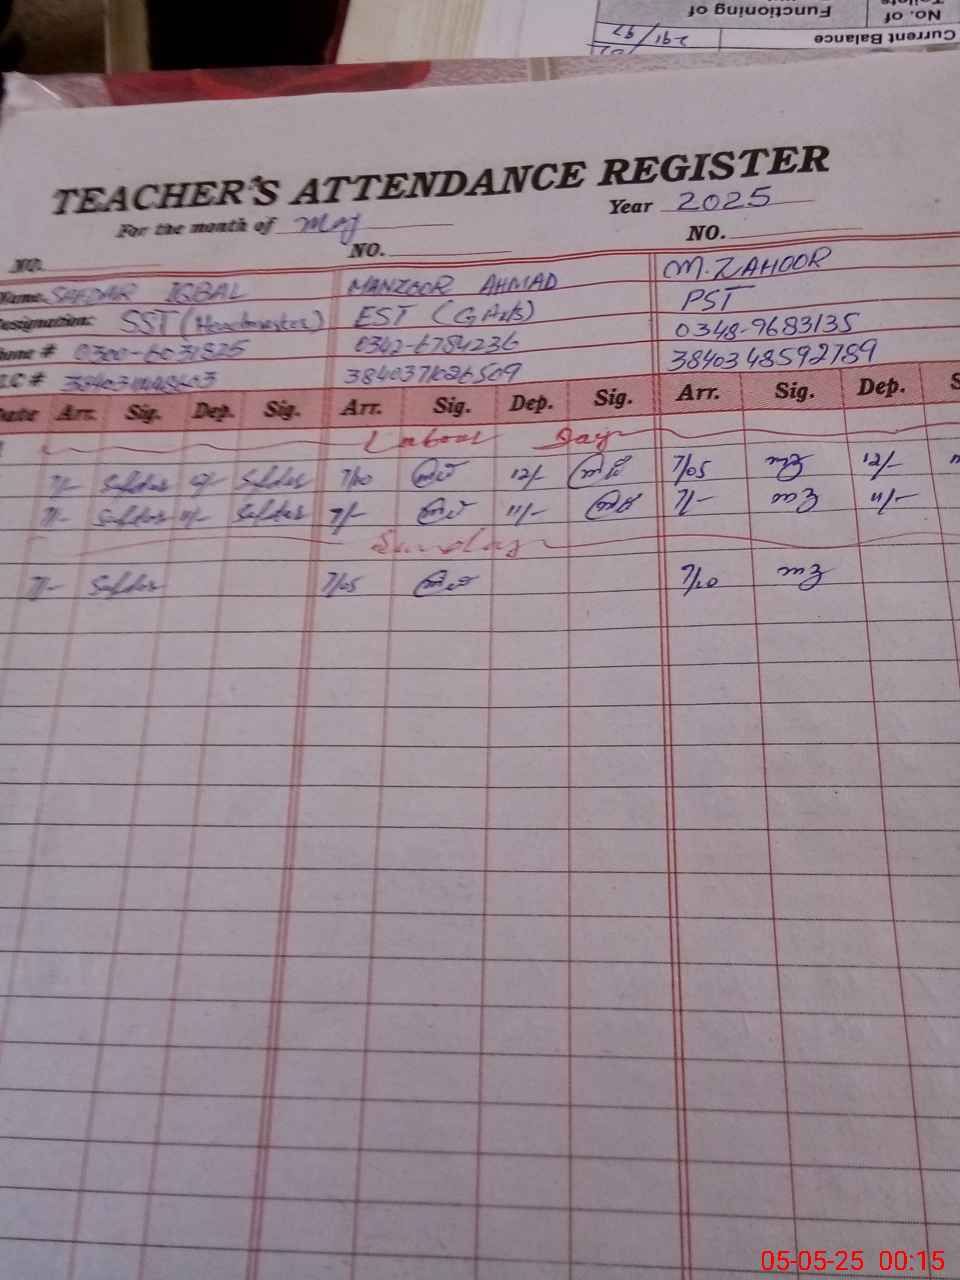 No. of
Functioning of
Current Balance
291/97
TEACHER'S ATTENDANCE REGISTER
For the month of May Year 2025
NO. NO. NO.
Name SAFDAR IQBAL MANZOOR AHMAD M. ZAHOOR
Designation: SST (Headmaster) EST (G Arts) PST
Phone # 0300-6031525 0342-6784236 0348-9683135
I.C # 3840371026509 3840348592789
Date Arr. Sig. Dep. Sig. Arr. Sig. Dep. Sig. Arr. Sig. Dep. S
Labour Day
7/- Safdar Safdar 7/00 12/- 7/05 12/-
7/- Safdar 11/- Safdar 7/- 11/- 7/- 11/-
Sunday
7/- Safdar 7/05 7/10
05-05-25 00:15